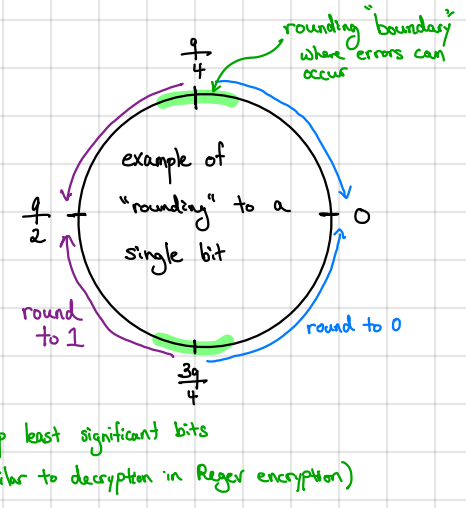 rounding "boundary"
where errors can
occur
q/4
example of
"rounding" to a
single bit
q/2
0
round
to 1
round to 0
3q/4
least significant bits
to decryption in Regev encryption)